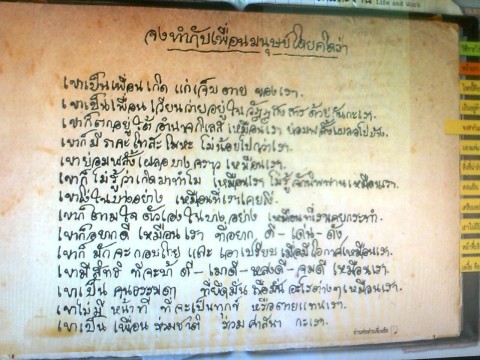 Life and Work
จงทำกับเพื่อนมนุษย์โดยคิดว่า
เขาเป็นเพื่อน เกิด แก่ เจ็บ ตาย ของเรา.
เขาเป็นเพื่อน เวียนว่ายอยู่ ใน วัฏฏสงสาร ด้วยกันกะเรา.
เขาก็ตกอยู่ใต้ อำนาจกิเลส เหมือนเรา ย่อมพลั้งเผลอไปบ้าง.
เขาก็ มี ราคะ โทสะ โมหะ ไม่น้อยไปกว่าเรา.
เขาย่อมพลั้งเผลอบางคราว เหมือนเรา.
เขาก็ ไม่รู้ว่าเกิดมาทำไม เหมือนเรา ไม่รู้จักนิพพานเหมือนเรา.
เขาโง่ในบางอย่าง เหมือนที่เราเคยโง่.
เขาก็ ตามใจ ตัวเองในบางอย่าง เหมือนที่เราเคยกระทำ.
เขาก็อยากดี เหมือนเรา ที่อยาก ดี - เด่น - ดัง
เขาก็ มักจะ กอบโกย และ เอาเปรียบ เมื่อมีโอกาสเหมือนเรา.
เขามีสิทธิ ที่จะบ้าดี - เมาดี - หลงดี - จมดี เหมือนเรา.
เขาเป็น คนธรรมดา ที่ยึดมั่น ถือมั่น อะไรต่างๆ เหมือนเรา.
เขาไม่มี หน้าที่ ที่จะเป็นทุกข์ หรือตายแทนเรา.
เขาเป็น เพื่อน ร่วมชาติ ร่วม ศาสนา กะเรา.